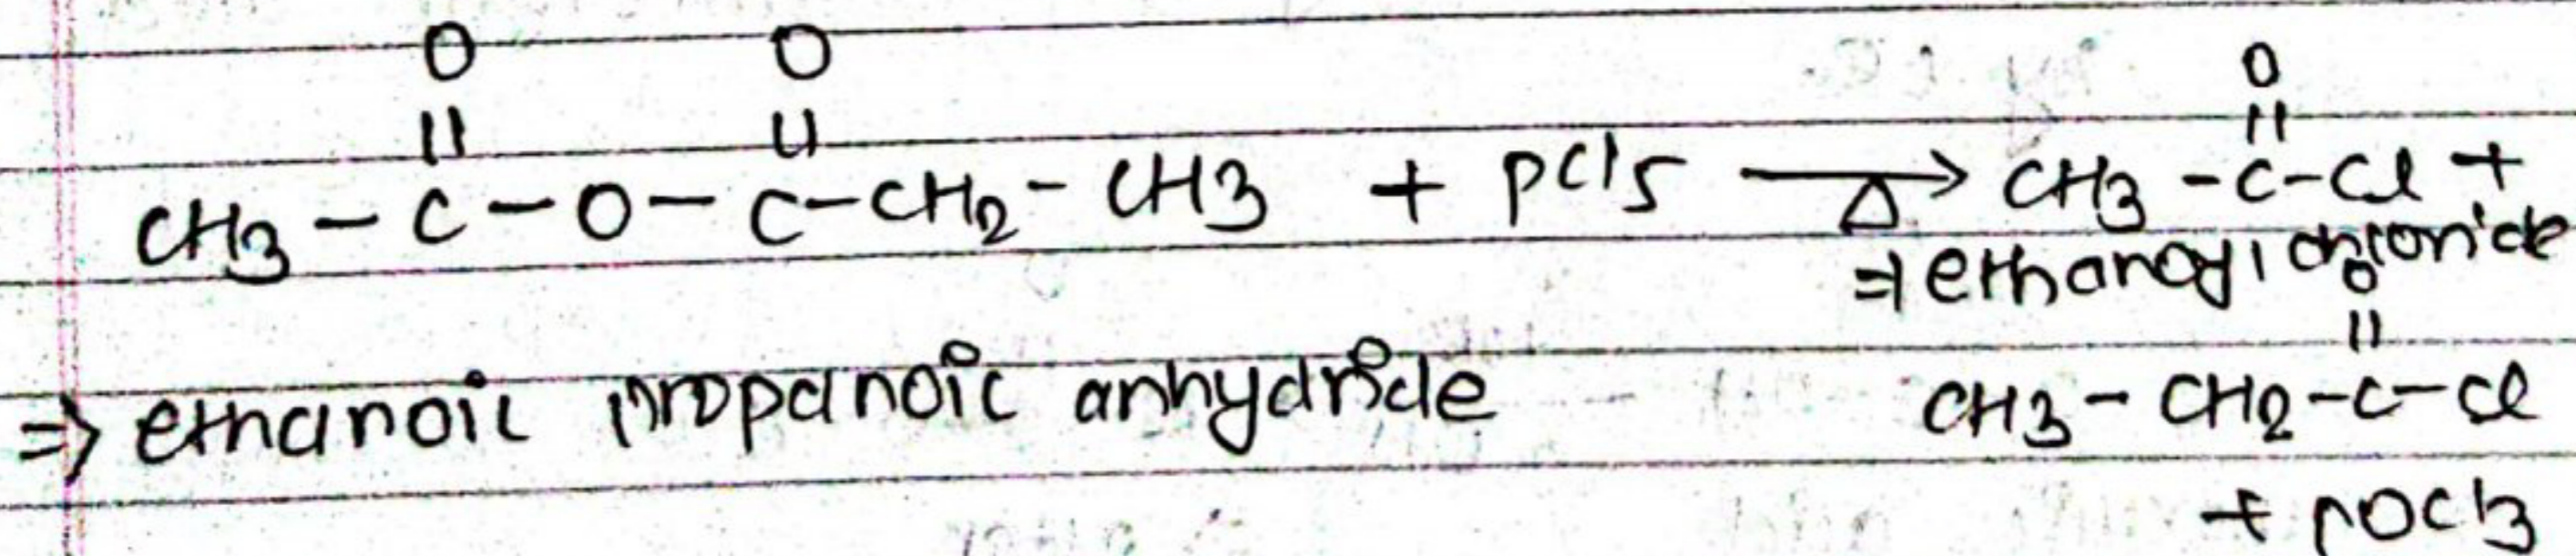 O O O
|| || ||
CH3 - C - O - C - CH2 - CH3 + PCl5 →Δ CH3 - C - Cl +
⇒ ethanoyl chloride
O
||
⇒ ethanoic propanoic anhydride CH3 - CH2 - C - Cl
+ POCl3